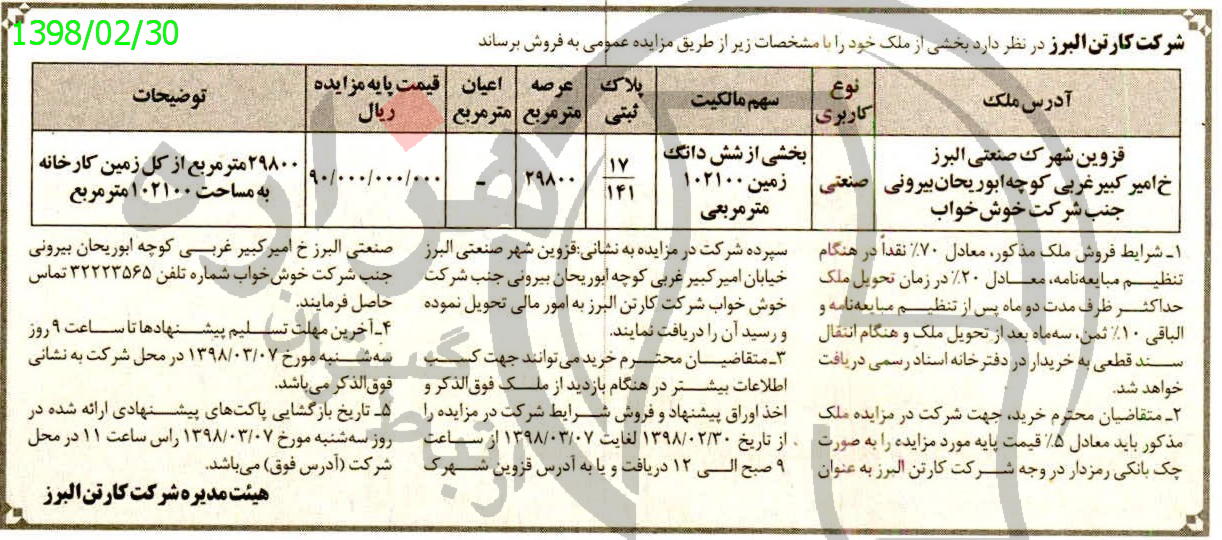 1398/02/30
شرکت کارتن البرز در نظر دارد بخشی از ملک خود را با مشخصات زیر از طریق مزایده عمومی به فروش برساند
آدرس ملک
نوع کاربری
سهم مالکیت
پلاک ثبتی
عرصه مترمربع
اعیان مترمربع
قیمت پایه مزایده ریال
توضیحات
قزوین شهرک صنعتی البرز
خ امیر کبیر غربی کوچه ابوریحان بیرونی
جنب شرکت خوش خواب
صنعتی
بخشی از شش دانگ
زمین ۱۰۲۱۰۰
مترمربعی
۱۷
۱۴۱
۲۹۸۰۰
-
۹۰/۰۰۰/۰۰۰/۰۰۰
۲۹۸۰۰ مترمربع از کل زمین کارخانه
به مساحت ۱۰۲۱۰۰ مترمربع
۱ـ شرایط فروش ملک مذکور، معادل ۷۰٪ نقداً در هنگام
تنظیم مبایعه‌نامه، معادل ۲۰٪ در زمان تحویل ملک
حداکثر ظرف مدت دو ماه پس از تنظیم مبایعه‌نامه و
الباقی ۱۰٪ ثمن، سه‌ماه بعد از تحویل ملک و هنگام انتقال
سند قطعی به خریدار در دفترخانه اسناد رسمی دریافت
خواهد شد.
۲ـ متقاضیان محترم خرید، جهت شرکت در مزایده ملک
مذکور باید معادل ۵٪ قیمت پایه مورد مزایده را به صورت
چک بانکی رمزدار در وجه شرکت کارتن البرز به عنوان
سپرده شرکت در مزایده به نشانی: قزوین شهر صنعتی البرز
خیابان امیر کبیر غربی کوچه ابوریحان بیرونی جنب شرکت
خوش خواب شرکت کارتن البرز به امور مالی تحویل نموده
و رسید آن را دریافت نمایند.
۳ـ متقاضیان محترم خرید می‌توانند جهت کسب
اطلاعات بیشتر در هنگام بازدید از ملک فوق‌الذکر و
اخذ اوراق پیشنهاد و فروش شرایط شرکت در مزایده را
از تاریخ ۱۳۹۸/۰۲/۳۰ لغایت ۱۳۹۸/۰۳/۰۷ از ساعت
۹ صبح الی ۱۲ دریافت و یا به آدرس قزوین شهرک
صنعتی البرز خ امیرکبیر غربی کوچه ابوریحان بیرونی
جنب شرکت خوش خواب شماره تلفن ۳۲۲۲۳۵۶۵ تماس
حاصل فرمایند.
۴ـ آخرین مهلت تسلیم پیشنهادها تا ساعت ۹ روز
سه‌شنبه مورخ ۱۳۹۸/۰۳/۰۷ در محل شرکت به نشانی
فوق‌الذکر می‌باشد.
۵ـ تاریخ بازگشایی پاکت‌های پیشنهادی ارائه شده در
روز سه‌شنبه مورخ ۱۳۹۸/۰۳/۰۷ راس ساعت ۱۱ در محل
شرکت (آدرس فوق) می‌باشد.
هیئت مدیره شرکت کارتن البرز